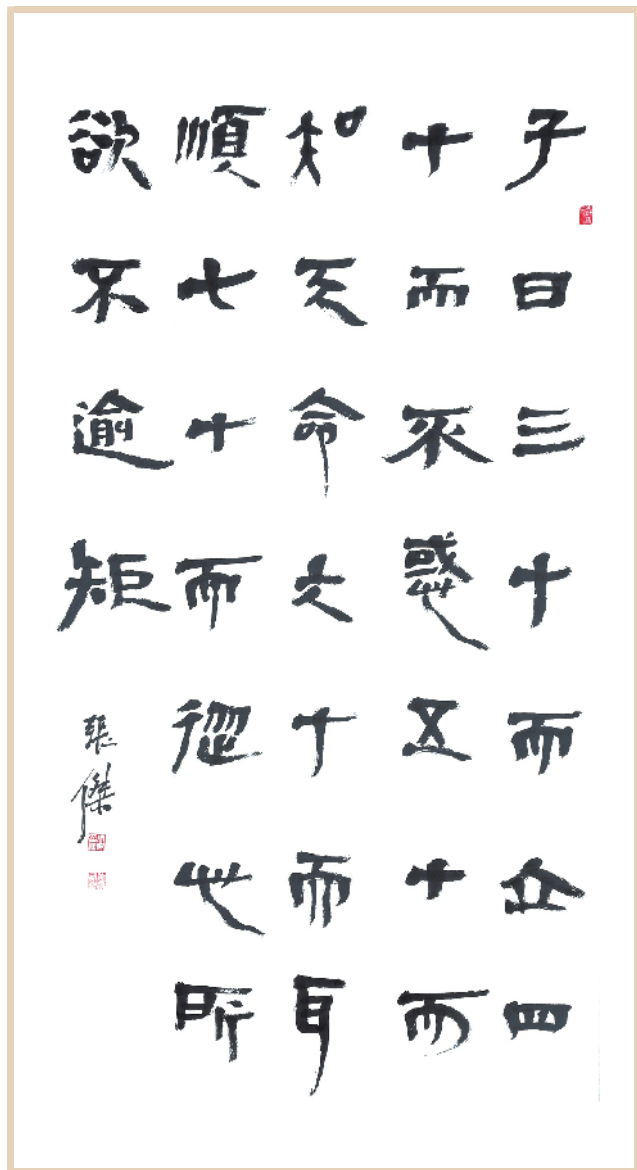 子曰三十而立四
十而不惑五十而
知天命六十而耳
順七十而從心所
欲不逾矩
張傑